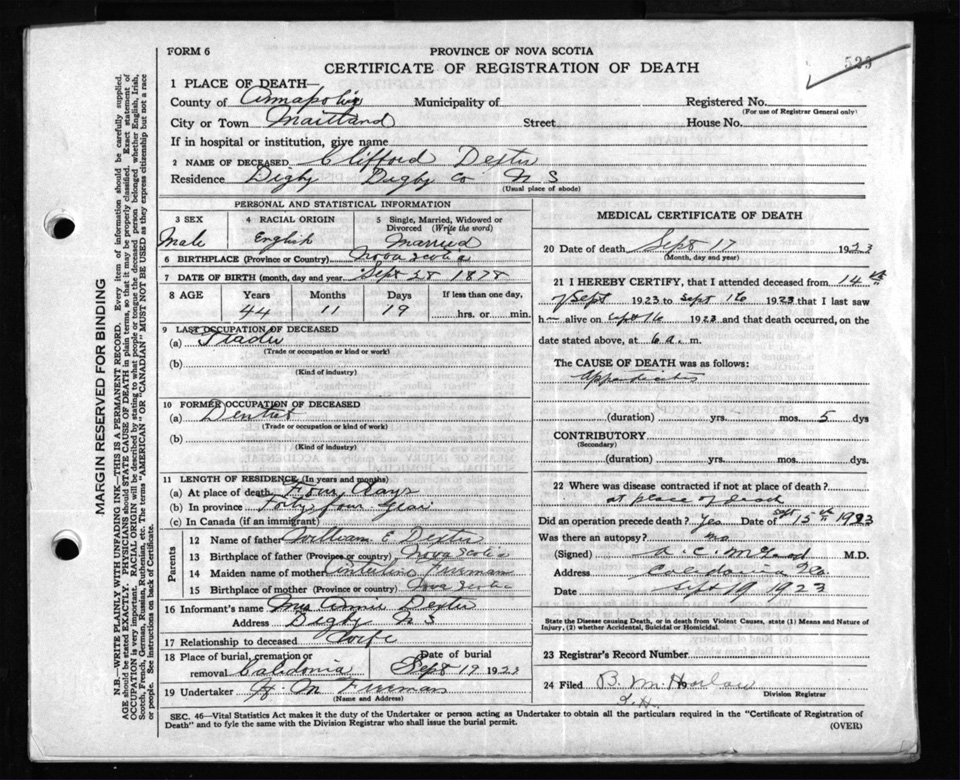 FORM 6
PROVINCE OF NOVA SCOTIA
CERTIFICATE OF REGISTRATION OF DEATH
1 PLACE OF DEATH—
County of Annapolis Municipality of Registered No.
(For use of Registrar General only)
City or Town Maitland Street House No.
If in hospital or institution, give name
2 NAME OF DECEASED Clifford Dexter
Residence Digby Digby Co N S
(Usual place of abode)
PERSONAL AND STATISTICAL INFORMATION
3 SEX 4 RACIAL ORIGIN 5 Single, Married, Widowed or
Divorced (Write the word)
Male English Married
6 BIRTHPLACE (Province or Country) Nova Scotia
7 DATE OF BIRTH (month, day and year) Sept 28 1878
8 AGE Years Months Days If less than one day,
44 11 19 hrs. or min.
9 LAST OCCUPATION OF DECEASED
(a)
(Trade or occupation or kind or work)
(b)
(Kind of industry)
10 FORMER OCCUPATION OF DECEASED
(a) Dentist
(Trade or occupation or kind of work)
(b)
(Kind of industry)
11 LENGTH OF RESIDENCE (In years and months)
(a) At place of death Four days
(b) In province Forty four year
(c) In Canada (if an immigrant)
Parents
12 Name of father William E Dexter
13 Birthplace of father (Province or country) Nova Scotia
14 Maiden name of mother Freeman
15 Birthplace of mother (Province or country) Nova Scotia
16 Informant's name Mrs Dexter
Address Digby N S
17 Relationship to deceased Wife
18 Place of burial, cremation or Date of burial
removal Caledonia Sept 19 1923
19 Undertaker H. M Freeman
(Name and Address)
MEDICAL CERTIFICATE OF DEATH
20 Date of death Sept 17 1923
(Month, day and year)
21 I HEREBY CERTIFY, that I attended deceased from 14 th
of Sept 1923 to Sept 16 1923 that I last saw
h alive on Sept 16 1923 and that death occurred, on the
date stated above, at 6 a. m.
The CAUSE OF DEATH was as follows:
Appendicitis
(duration) yrs. mos. 5 dys
CONTRIBUTORY
(Secondary)
(duration) yrs. mos. dys.
22 Where was disease contracted if not at place of death?
at place of death
Did an operation precede death? Yes Date of Sept 15 th 1923
Was there an autopsy? no
(Signed) A. C. McLeod M.D.
Address Caledonia
Date Sept 19 1923
State the Disease causing Death, or in death from Violent Causes, state (1) Means and Nature of
Injury, (2) whether Accidental, Suicidal or Homicidal.
23 Registrar's Record Number
24 Filed B. M. Harlow
Division Registrar
SEC. 46—Vital Statistics Act makes it the duty of the Undertaker or person acting as Undertaker to obtain all the particulars required in the "Certificate of Registration of
Death" and to fyle the same with the Division Registrar who shall issue the burial permit.
(OVER)
MARGIN RESERVED FOR BINDING
N.B.—WRITE PLAINLY WITH UNFADING INK—THIS IS A PERMANENT RECORD. Every item of information should be carefully supplied.
AGE should be stated EXACTLY. PHYSICIANS should STATE CAUSE OF DEATH in plain terms, so that it may be properly classified. Exact statement of
OCCUPATION is very important. RACIAL ORIGIN will be described by stating to what people or tongue the deceased person belonged whether English, Irish,
Scotch, French, German, Russian, Ruthenian, etc. The terms "AMERICAN" OR "CANADIAN" MUST NOT BE USED as they express citizenship but not a race
or people. See instructions on back of Certificate.